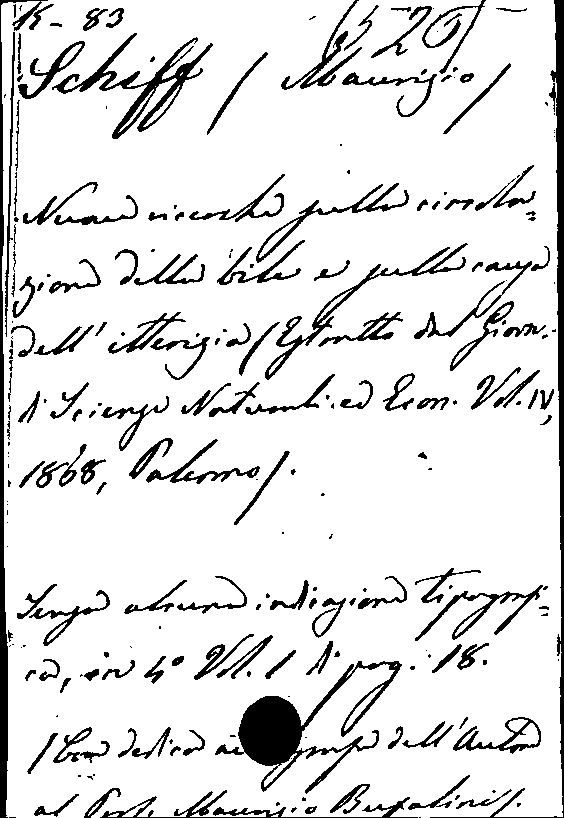 K - 83 (520)
Schiff (Maurizio)
Nuove ricerche sulla circola=
zione della bile e sulla causa
dell' itterizia (Estratto dal Giorn.
di Scienze Naturali ed Econ. Vol. IV,
1868, Palermo).
Senza alcuna indicazione tipografi=
ca, in 4º Vol. 1 di pag. 18.
(Con dedica dell'Autore
al Prof. Maurizio Bufalini).